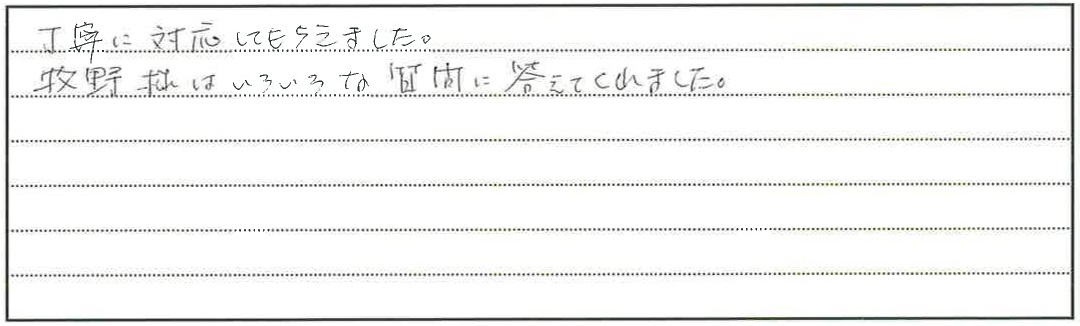 丁寧に対応してもらえました。
牧野様はいろいろな質問に答えてくれました。